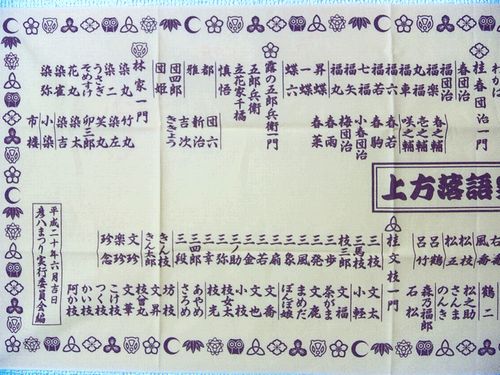 桂春団治一門
春団治
福団治
福楽
福車
福丸
福若
七福
福矢
昇蝶
一蝶
蝶六
春之輔
壱之輔
咲之輔
春若
春駒
小春団治
梅団治
春雨
春菜
露の五郎兵衛一門
五郎兵衛
立花家千橘
慎悟
都
雅
団四郎
団姫
団六
新治
吉次
ききょう
林家一門
染丸
染二
うさぎ
そめすけ
花丸
染雀
染弥
竹丸
染左
笑丸
卯三郎
染太
染吉
小染
市楼
上方落語
風喬
松五
松枝
呂鶴
呂竹
鶴二
松之助
さんま
のんき
森乃福郎
石松
桂文枝一門
三枝
枝三郎
三歩
三風
三象
三若
三金
三ノ助
三弥
三幸
三四郎
三段
きん枝
きん太郎
文珍
楽珍
珍念
文太
小軽
文福
茶がま
文鹿
まめだ
ぽんぽ娘
文喬
文也
小文
枝女太
枝光
あやめ
さろめ
坊枝
文昇
枝曾丸
文華
こけ枝
つく枝
かい枝
阿か枝
平成二十年六月吉日
彦八まつり実行委員会編